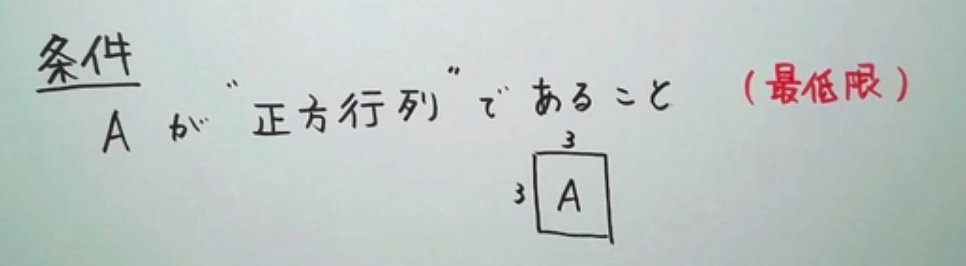 条件
Aが“正方行列”であること (最低限)
3
3 A